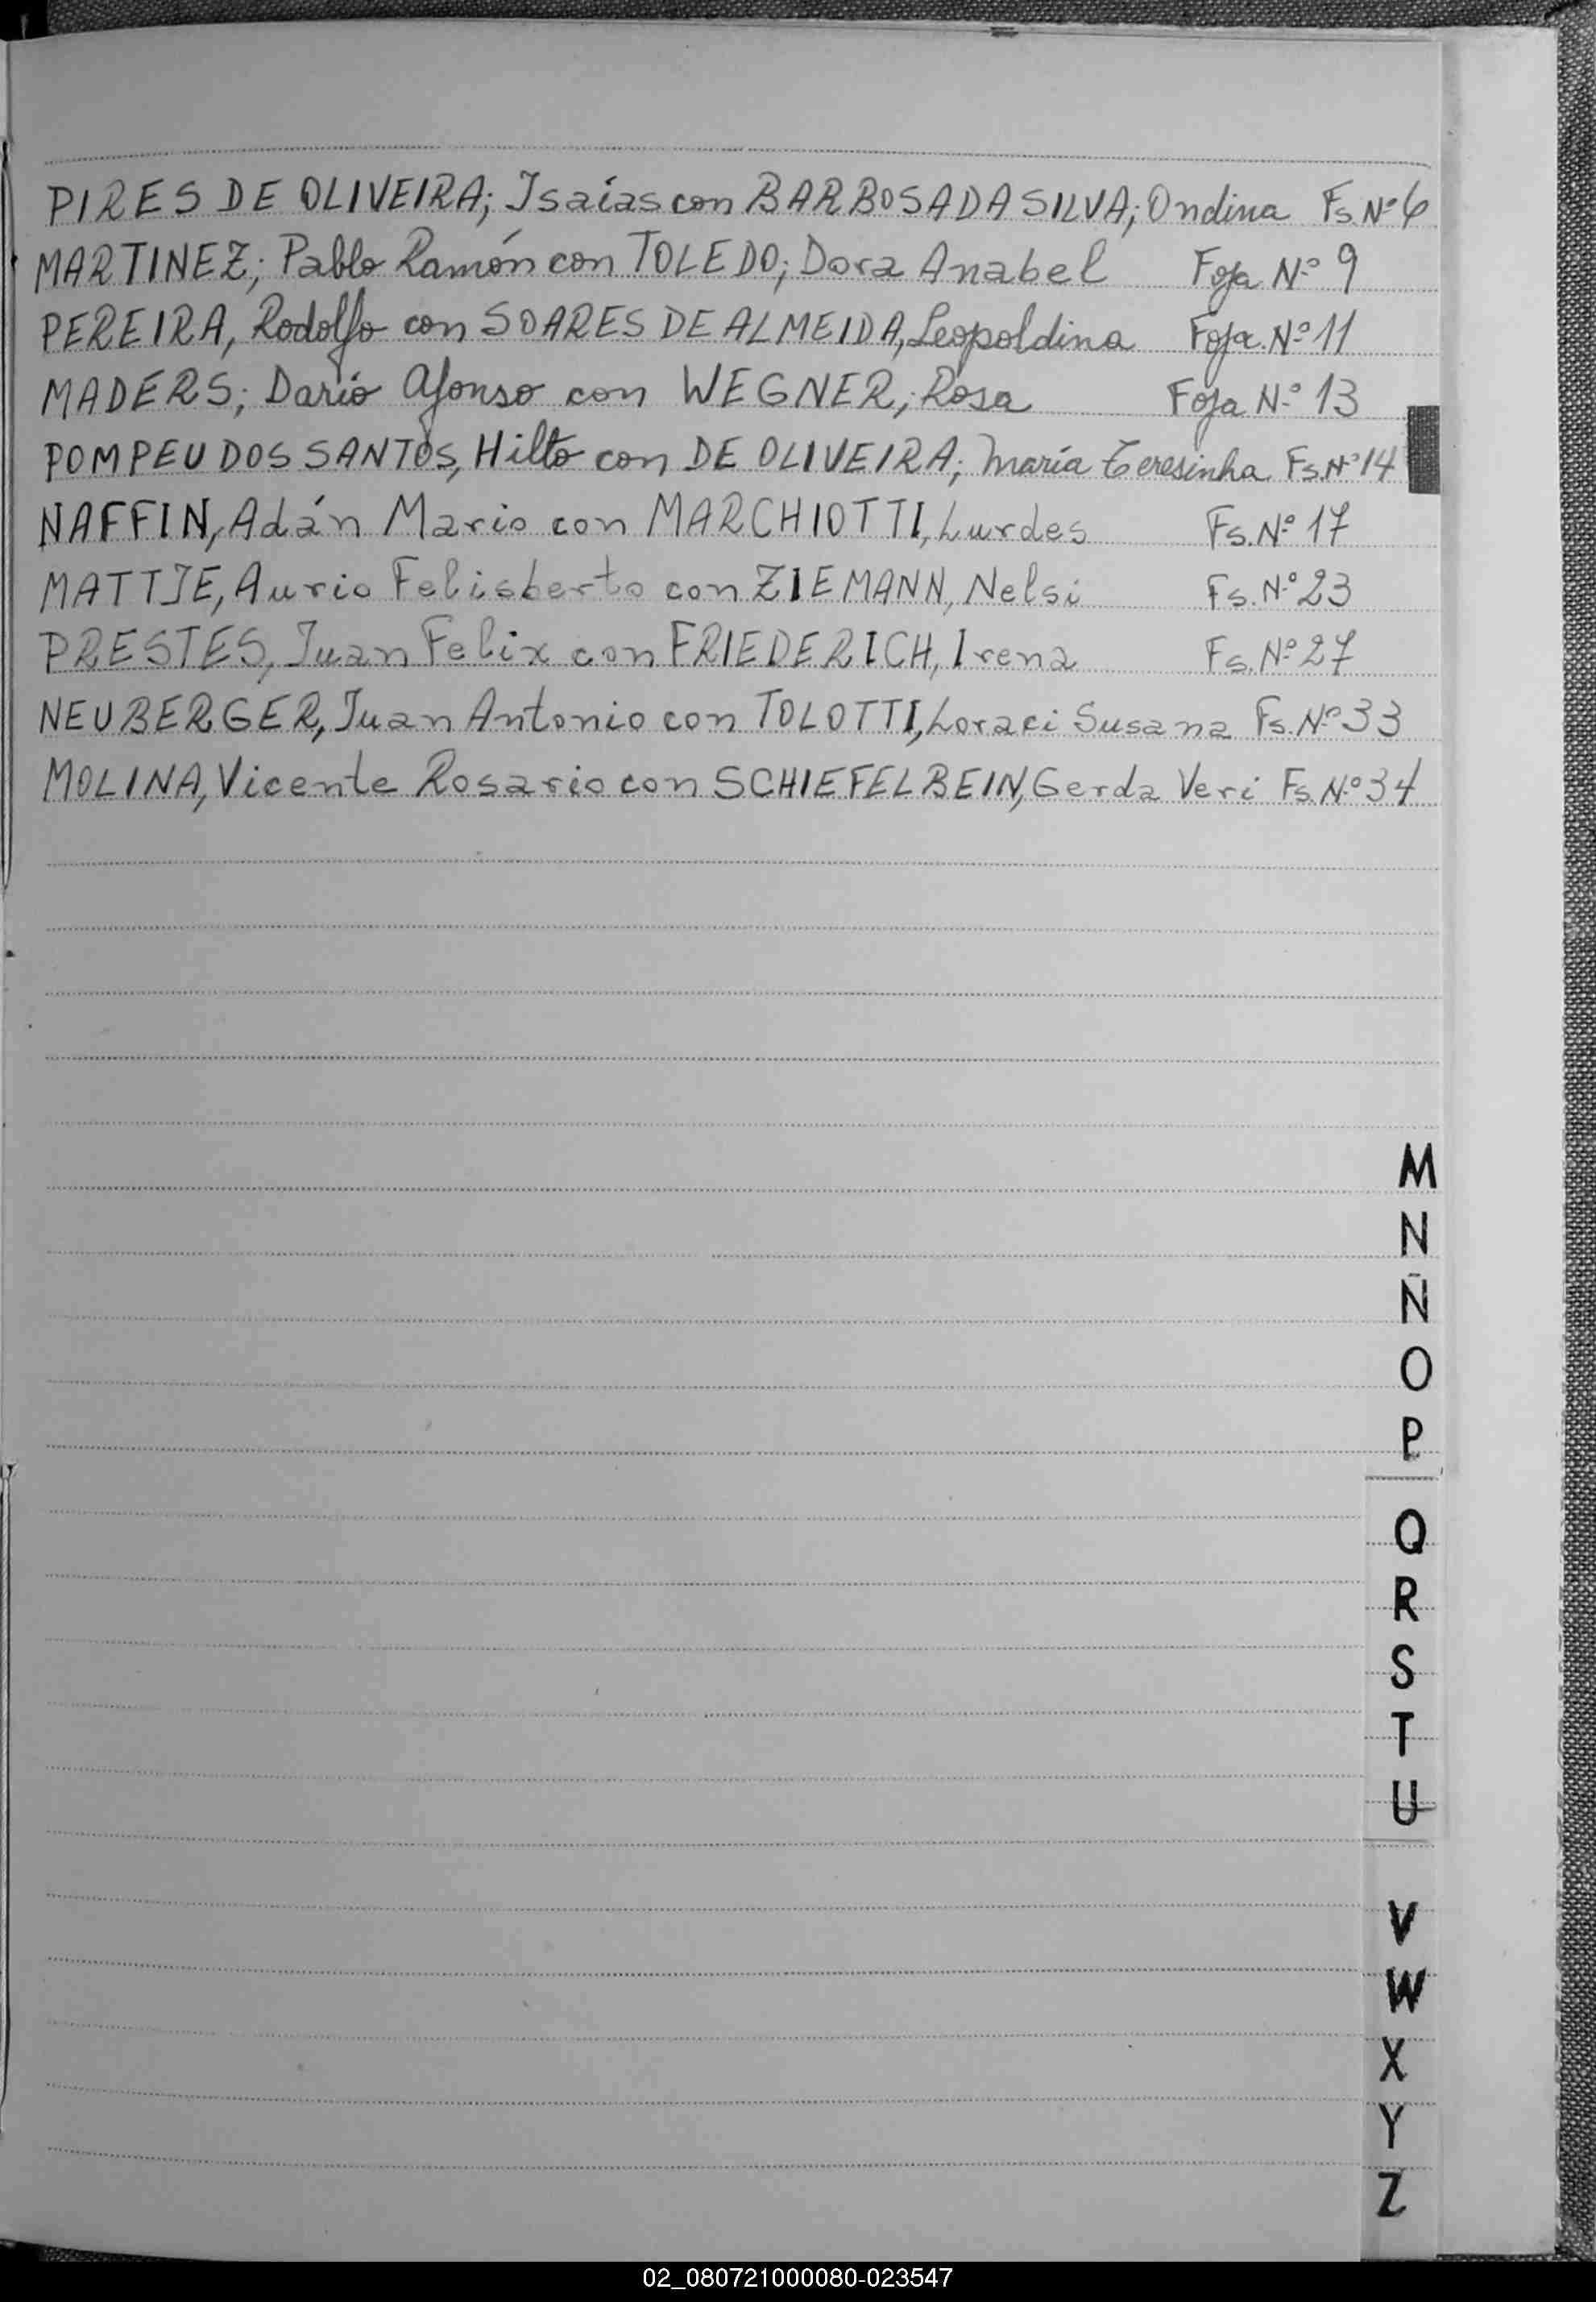 PIRES DE OLIVEIRA; Isaías con BARBOSA DA SILVA; Ondina Fs. Nº 6
MARTINEZ; Pablo Ramón con TOLEDO; Dora Anabel Foja Nº 9
PEREIRA, Rodolfo con SOARES DE ALMEIDA, Leopoldina Foja Nº 11
MADERS; Darío Afonso con WEGNER; Rosa Foja Nº 13
POMPEU DOS SANTOS, Hilto con DE OLIVEIRA; María Teresinha Fs. Nº 14
NAFFIN, Adán Mario con MARCHIOTTI, Lurdes Fs. Nº 17
MATTJE, Aurio Felisberto con ZIEMANN, Nelsi Fs. Nº 23
PRESTES, Juan Felix con FRIEDERICH, Irena Fs. Nº 27
NEUBERGER, Juan Antonio con TOLOTTI, Loraci Susana Fs. Nº 33
MOLINA, Vicente Rosario con SCHIEFELBEIN, Gerda Veri Fs. Nº 34
M
N
Ñ
O
P
Q
R
S
T
U
V
W
X
Y
Z
02_080721000080-023547